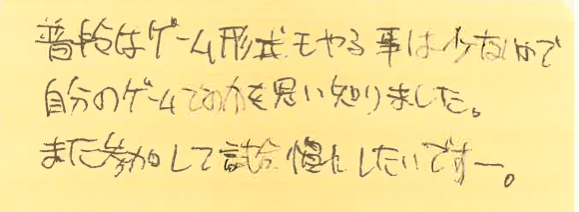 普段はゲーム形式もやる事は少ないので
自分のゲームでの力を思い知りました。
また参加して試合慣れしたいですー。